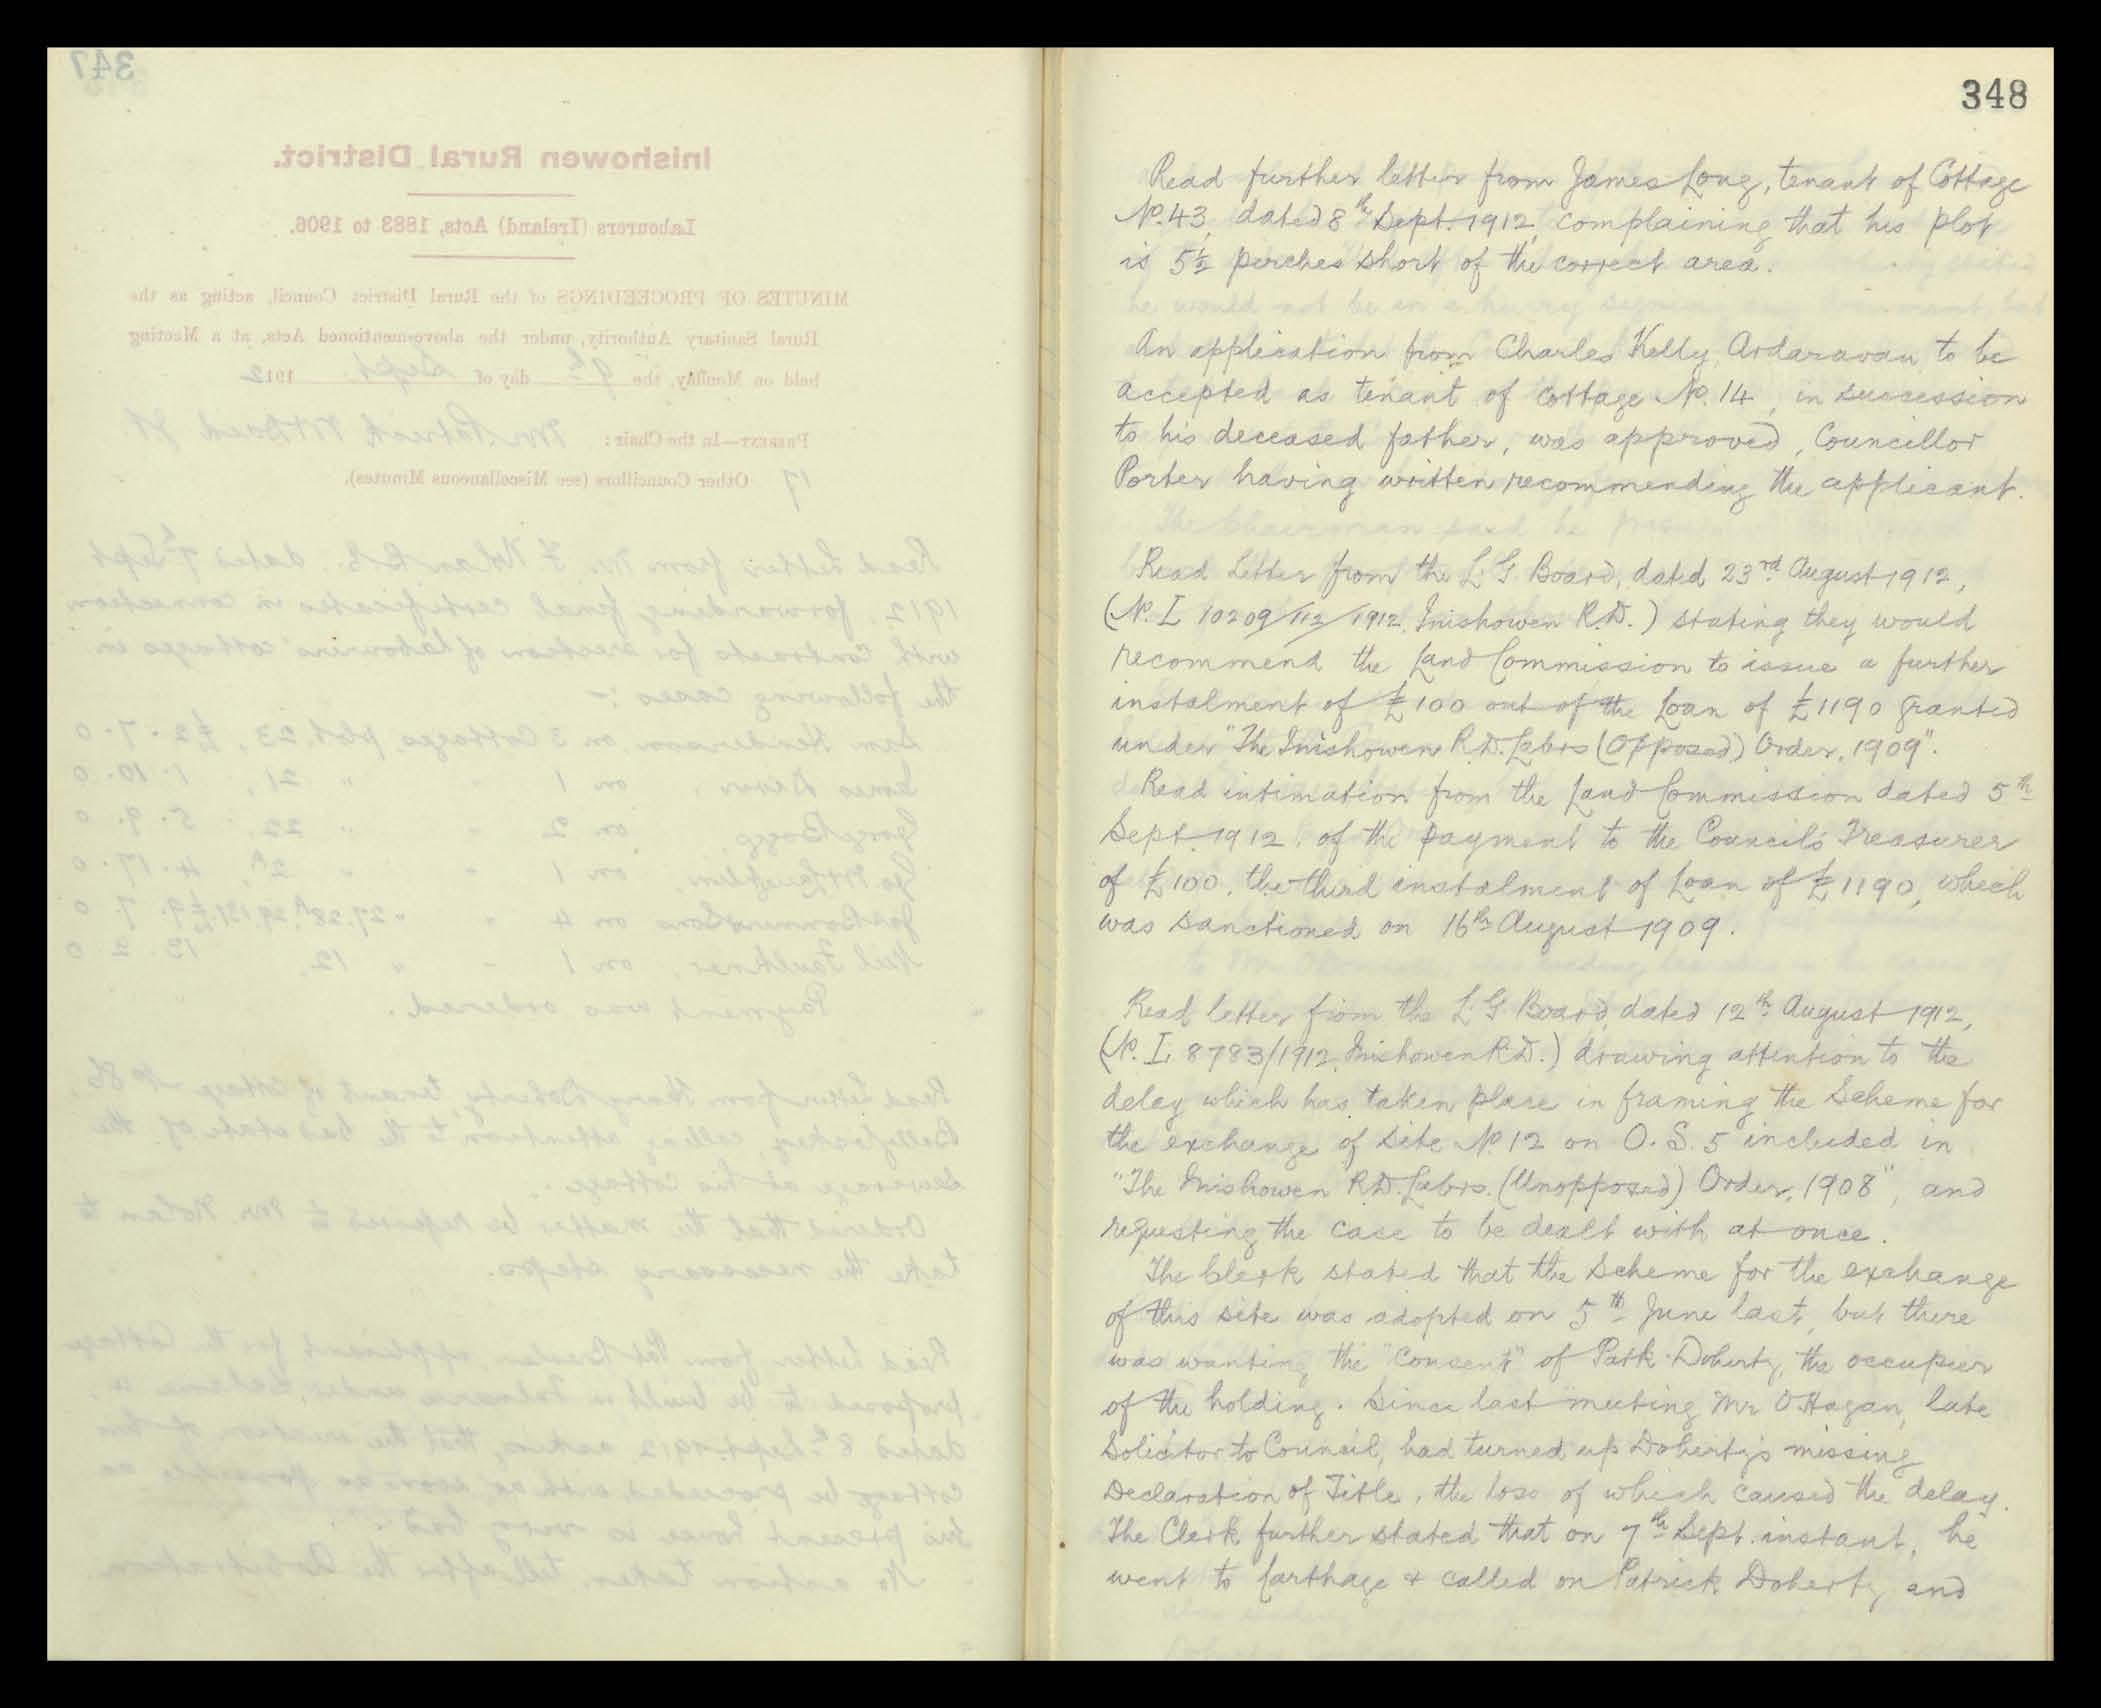 347
Inishowen Rural District.
Labourers (Ireland) Acts, 1883 to 1906.
MINUTES OF PROCEEDINGS of the Rural District Council, acting as the
Rural Sanitary Authority, under the above-mentioned Acts, at a Meeting
held on Monday, the 9th day of Sept. 1912
PRESENT—In the Chair: Mr Patrick McDaid
17 Other Councillors (see Miscellaneous Minutes).
Read Letter from Mr. F. Nolan, dated 7th Sept
1912, forwarding final certificates in connection
with Contracts for erection of labourers' cottages in
the following cases :-
Henderson, on 3 Cottages, plot 23, £2.7.0
James on 1 " " 21, 1.10.0
on 2 " " 22, 5.9.0
McLaughlin, on 1 " " 4.17.0
on 4
Neil Faulkner, on 1 " " 12, 13.2.0
Payment was ordered.
Read Letter from Doherty, tenant of Cottage No 86,
calling attention to the bad state of the
sewerage at his cottage.
Ordered that the matter be referred to Mr. Nolan to
take the necessary steps.
Read Letter from applicant for the Cottage
proposed to be built in under scheme
dated 8th Sept. 1912 asking that the erection of the
cottage be proceeded with as soon as possible as
his present house is very bad.
No action taken till after the Arbitration.
348
Read further letter from James Long, tenant of Cottage
No. 43, dated 8th Sept. 1912, complaining that his plot
is 5½ perches short of the correct area.
An application from Charles Kelly, Ardaravan, to be
accepted as tenant of cottage No. 14, in succession
to his deceased father, was approved, Councillor
Porter having written recommending the applicant.
Read Letter from the L G Board, dated 23rd August 1912,
(No. I 10209/112/1912, Inishowen R.D.) stating they would
recommend the Land Commission to issue a further
instalment of £100 out of the Loan of £1190 granted
under "The Inishowen R.D. Labrs (Opposed) Order, 1909".
Read intimation from the Land Commission dated 5th
Sept. 1912, of the payment to the Council's Treasurer
of £100, the third instalment of Loan of £1190, which
was sanctioned on 16th August 1909.
Read letter from the L G Board, dated 12th August 1912,
(No. I. 8783/1912, Inishowen R.D.) drawing attention to the
delay which has taken place in framing the Scheme for
the exchange of site No 12 on O.S. 5 included in
"The Inishowen R.D. Labrs. (Unopposed) Order, 1908", and
requesting the case to be dealt with at once.
The Clerk stated that the Scheme for the exchange
of this site was adopted on 5th June last, but there
was wanting the "Consent" of Patk Doherty, the occupier
of the holding. Since last meeting Mr O'Hagan, late
Solicitor to Council, had turned up Doherty's missing
Declaration of Title, the loss of which caused the delay.
The Clerk further stated that on 7th Sept. instant, he
went to Carthage & called on Patrick Doherty and